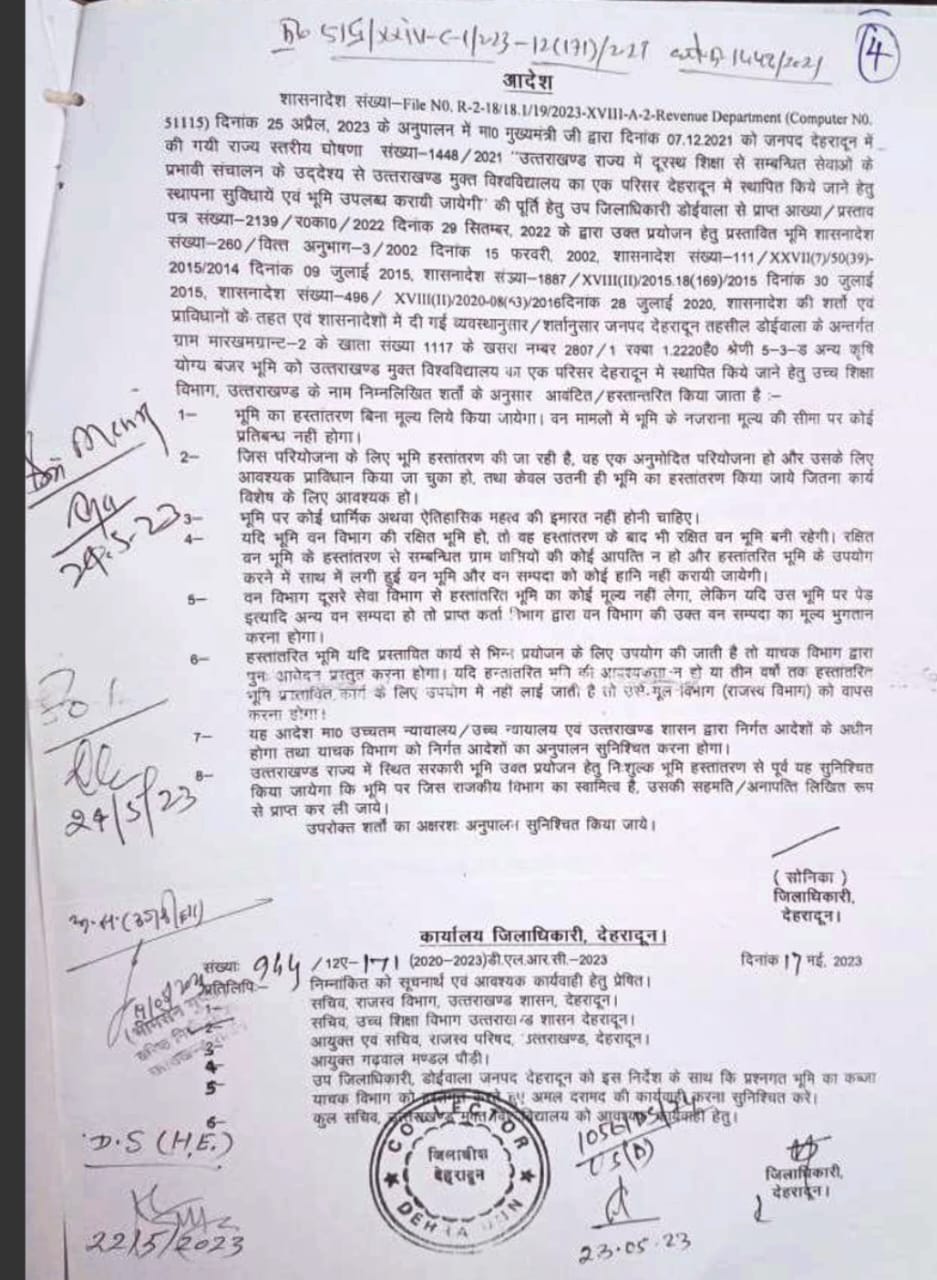 4
आदेश
शासनादेश संख्या–File N0. R-2-18/18.1/19/2023-XVIII-A-2-Revenue Department (Computer N0.
51115) दिनांक 25 अप्रैल, 2023 के अनुपालन में मा0 मुख्यमंत्री जी द्वारा दिनांक 07.12.2021 को जनपद देहरादून में
की गयी राज्य स्तरीय घोषणा संख्या–1448/2021 "उत्तराखण्ड राज्य में दूरस्थ शिक्षा से सम्बन्धित सेवाओं के
प्रभावी संचालन के उद्देश्य से उत्तराखण्ड मुक्त विश्वविद्यालय का एक परिसर देहरादून में स्थापित किये जाने हेतु
स्थापना सुविधायें एवं भूमि उपलब्ध करायी जायेगी" की पूर्ति हेतु उप जिलाधिकारी डोईवाला से प्राप्त आख्या/प्रस्ताव
पत्र संख्या–2139/र0का0/2022 दिनांक 29 सितम्बर, 2022 के द्वारा उक्त प्रयोजन हेतु प्रस्तावित भूमि शासनादेश
संख्या–260/वित्त अनुभाग–3/2002 दिनांक 15 फरवरी, 2002, शासनादेश संख्या–111/XXVII(7)/50(39)-
2015/2014 दिनांक 09 जुलाई 2015, शासनादेश संख्या–1887/XVIII(II)/2015.18(169)/2015 दिनांक 30 जुलाई
2015, शासनादेश संख्या–496/ XVIII(II)/2020-08(63)/2016दिनांक 28 जुलाई 2020, शासनादेश की शर्तों एवं
प्राविधानों के तहत एवं शासनादेशों में दी गई व्यवस्थानुसार/शर्तानुसार जनपद देहरादून तहसील डोईवाला के अन्तर्गत
ग्राम मारखमग्रान्ट–2 के खाता संख्या 1117 के खसरा नम्बर 2807/1 रकबा 1.2220है0 श्रेणी 5–3–ड अन्य कृषि
योग्य बंजर भूमि को उत्तराखण्ड मुक्त विश्वविद्यालय का एक परिसर देहरादून में स्थापित किये जाने हेतु उच्च शिक्षा
विभाग, उत्तराखण्ड के नाम निम्नलिखित शर्तों के अनुसार आवंटित/हस्तान्तरित किया जाता है :–
1– भूमि का हस्तांतरण बिना मूल्य लिये किया जायेगा। वन मामलों में भूमि के नजराना मूल्य की सीमा पर कोई
प्रतिबन्ध नहीं होगा।
2– जिस परियोजना के लिए भूमि हस्तांतरण की जा रही है, वह एक अनुमोदित परियोजना हो और उसके लिए
आवश्यक प्राविधान किया जा चुका हो, तथा केवल उतनी ही भूमि का हस्तांतरण किया जाये जितना कार्य
विशेष के लिए आवश्यक हो।
3– भूमि पर कोई धार्मिक अथवा ऐतिहासिक महत्व की इमारत नहीं होनी चाहिए।
4– यदि भूमि वन विभाग की रक्षित भूमि हो, तो वह हस्तांतरण के बाद भी रक्षित वन भूमि बनी रहेगी। रक्षित
वन भूमि के हस्तांतरण से सम्बन्धित ग्राम वासियों की कोई आपत्ति न हो और हस्तांतरित भूमि के उपयोग
करने में साथ में लगी हुई वन भूमि और वन सम्पदा को कोई हानि नहीं करायी जायेगी।
5– वन विभाग दूसरे सेवा विभाग से हस्तांतरित भूमि का कोई मूल्य नहीं लेगा, लेकिन यदि उस भूमि पर पेड
इत्यादि अन्य वन सम्पदा हो तो प्राप्त कर्ता विभाग द्वारा वन विभाग की उक्त वन सम्पदा का मूल्य भुगतान
करना होगा।
6– हस्तांतरित भूमि यदि प्रस्तावित कार्य से भिन्न प्रयोजन के लिए उपयोग की जाती है तो याचक विभाग द्वारा
पुनः आवेदन प्रस्तुत करना होगा। यदि हस्तांतरित भूमि की आवश्यकता न हो या तीन वर्षों तक हस्तांतरित
भूमि प्रस्तावित कार्य के लिए उपयोग मे नही लाई जाती है तो उसे मूल विभाग (राजस्व विभाग) को वापस
करना होगा।
7– यह आदेश मा0 उच्चतम न्यायालय/उच्च न्यायालय एवं उत्तराखण्ड शासन द्वारा निर्गत आदेशों के अधीन
होगा तथा याचक विभाग को निर्गत आदेशों का अनुपालन सुनिश्चित करना होगा।
8– उत्तराखण्ड राज्य में स्थित सरकारी भूमि उक्त प्रयोजन हेतु निःशुल्क भूमि हस्तांतरण से पूर्व यह सुनिश्चित
किया जायेगा कि भूमि पर जिस राजकीय विभाग का स्वामित्व है, उसकी सहमति/अनापत्ति लिखित रूप
से प्राप्त कर ली जाये।
उपरोक्त शर्तो का अक्षरशः अनुपालन सुनिश्चित किया जाये।
24.5.23
24/5/23
( सोनिका )
जिलाधिकारी,
देहरादून।
कार्यालय जिलाधिकारी, देहरादून।
संख्याः 944 /12ए–171 (2020–2023)डी.एल.आर.सी.–2023 दिनांक 17 मई, 2023
प्रतिलिपिः– निम्नांकित को सूचनार्थ एवं आवश्यक कार्यवाही हेतु प्रेषित।
1– सचिव, राजस्व विभाग, उत्तराखण्ड शासन, देहरादून।
2– सचिव, उच्च शिक्षा विभाग उत्तराखण्ड शासन देहरादून।
3– आयुक्त एवं सचिव, राजस्व परिषद, उत्तराखण्ड, देहरादून।
4– आयुक्त गढ़वाल मण्डल पौड़ी।
5– उप जिलाधिकारी, डोईवाला जनपद देहरादून को इस निर्देश के साथ कि प्रश्नगत भूमि का कब्जा
याचक विभाग को हस्तगत करते हुए अमल दरामद की कार्यवाही करना सुनिश्चित करें।
6– कुल सचिव, उत्तराखण्ड मुक्त विश्वविद्यालय को आवश्यक कार्यवाही हेतु।
D.S (H.E.)
22/5/2023
COLLECTOR
जिलाधीश
देहरादून
DEHRA DUN
US(D)
23.05.23
जिलाधिकारी,
देहरादून।